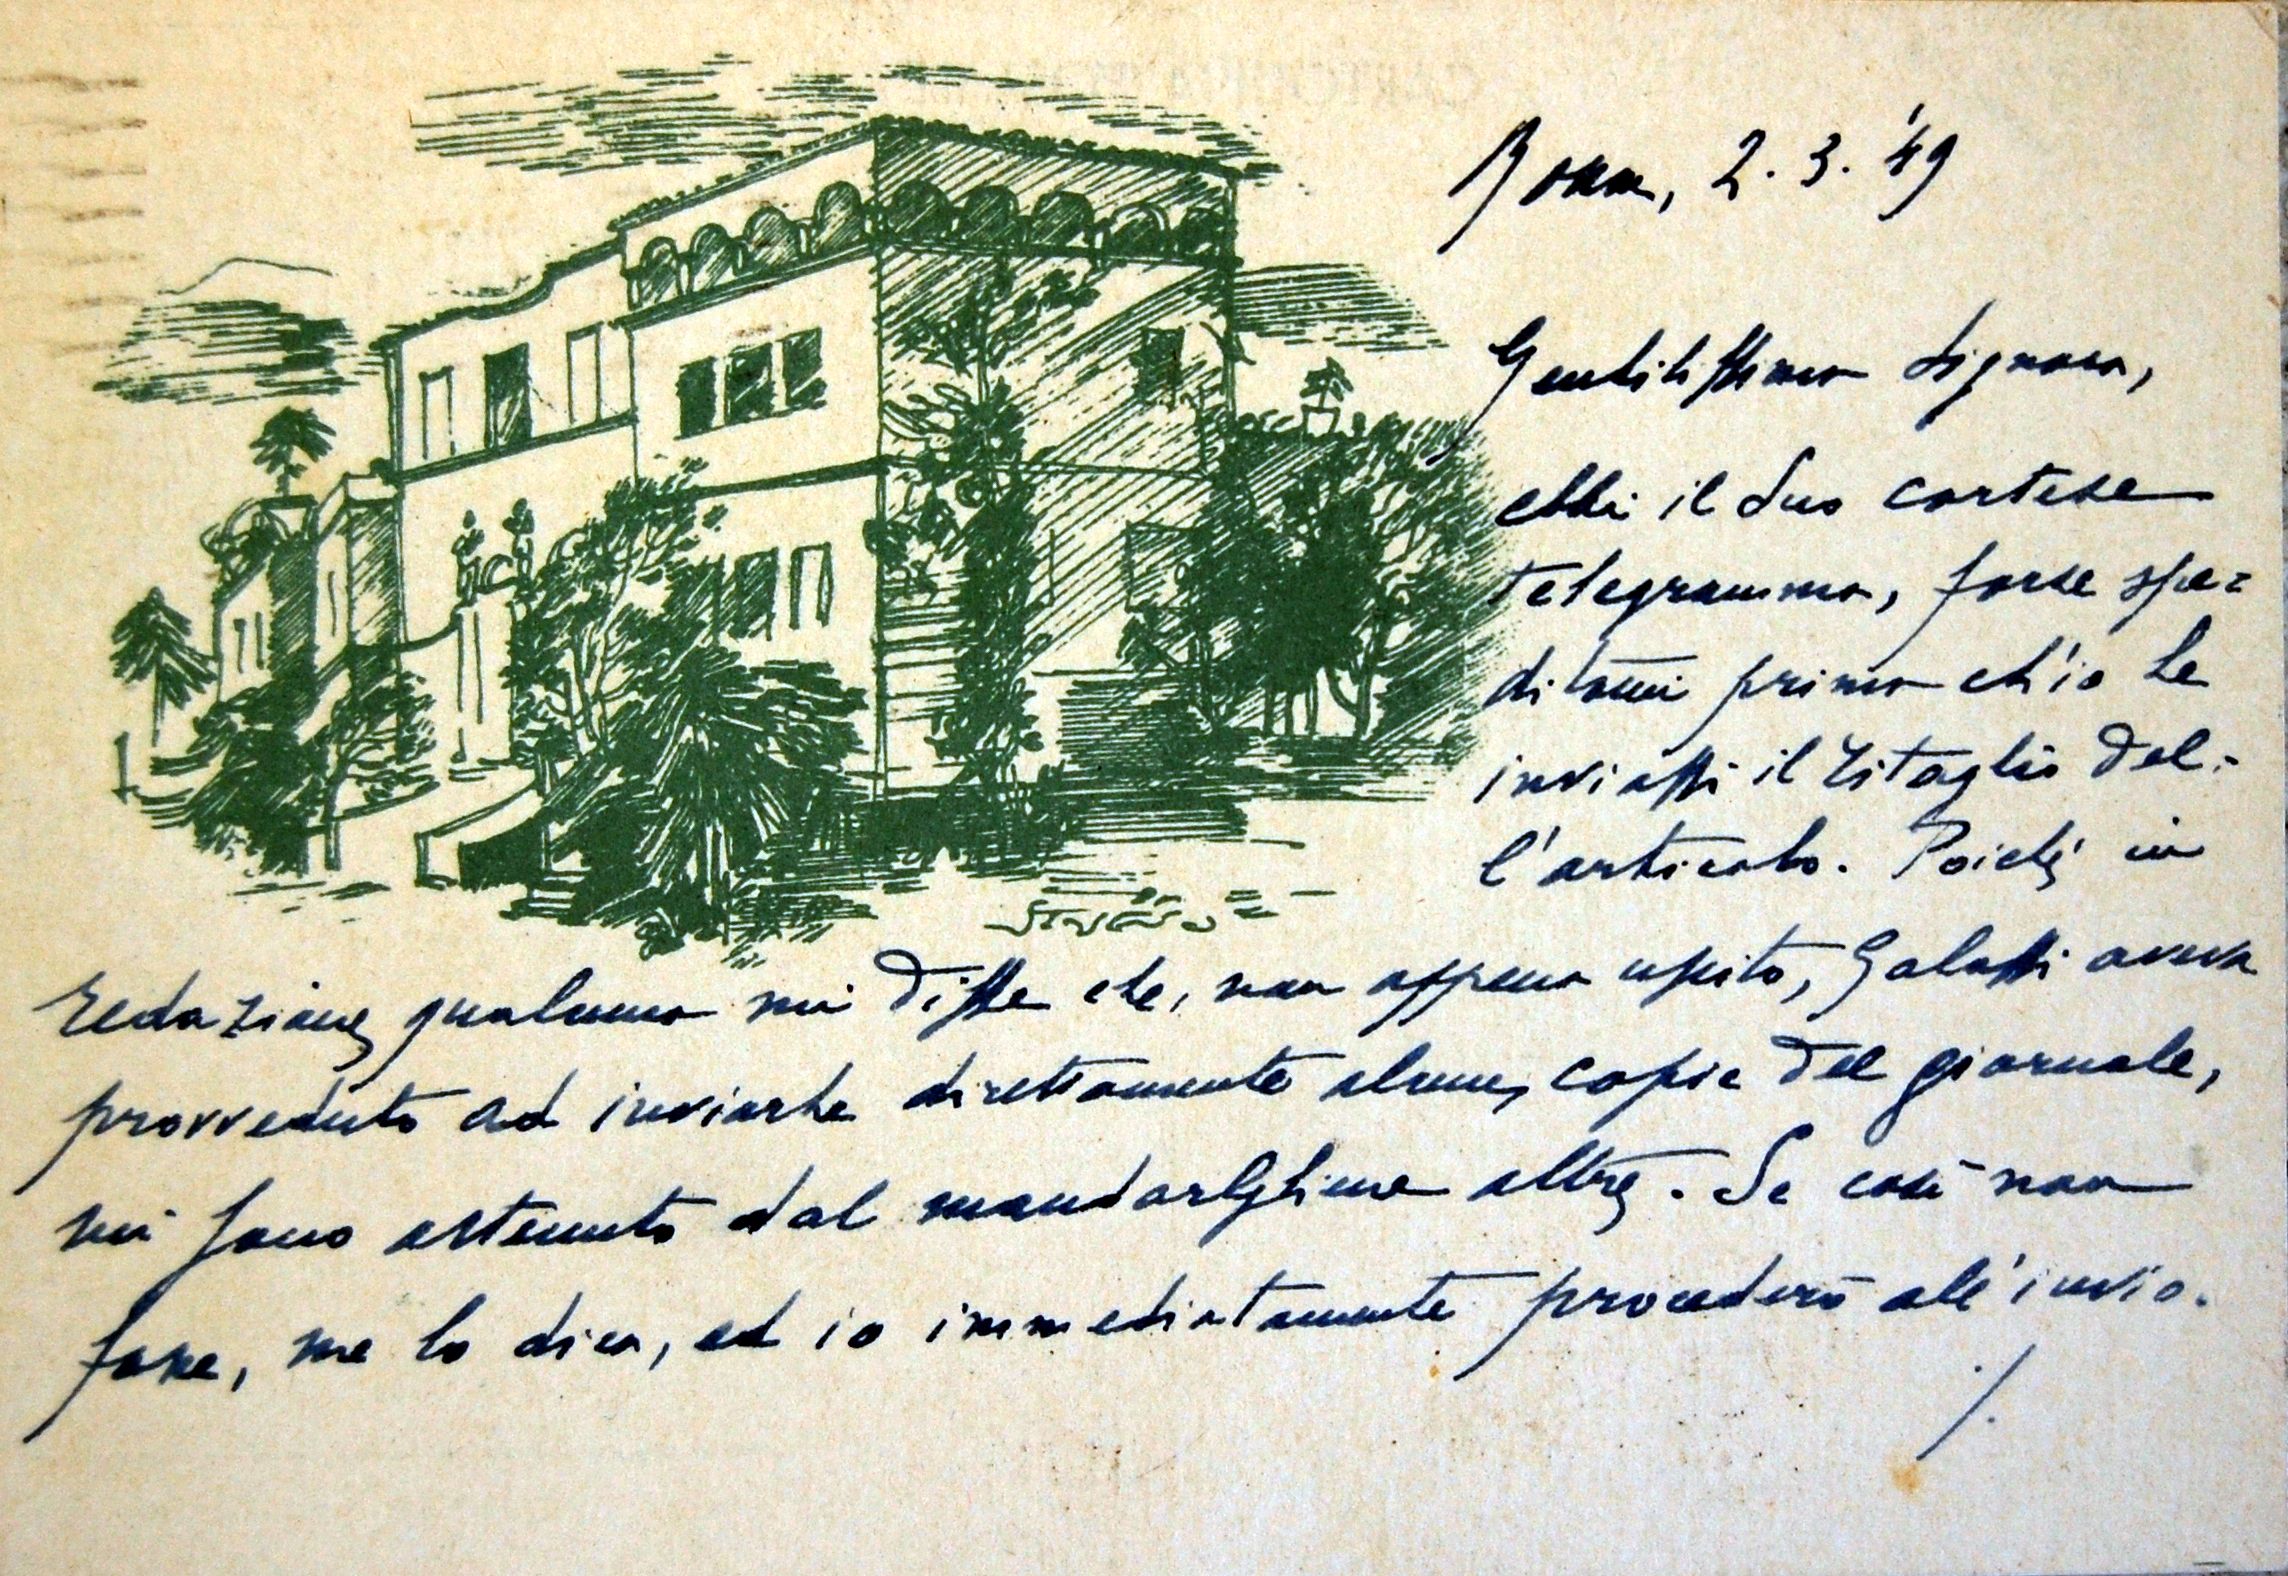 Roma, 2.3.'49
Gentilissima Signora,
ebbi il Suo cortese
telegramma, forse spe=
ditomi prima ch'io Le
inviassi il ritaglio del=
l'articolo. Poiché in
redazione qualcuno mi disse che, non appena uscito, Galassi aveva
provveduto ad inviarLe direttamente alcune copie del giornale,
mi sono astenuto dal mandarGliene altre. Se così non
fosse, me lo dica, ed io immediatamente procederò all'invio.
./.